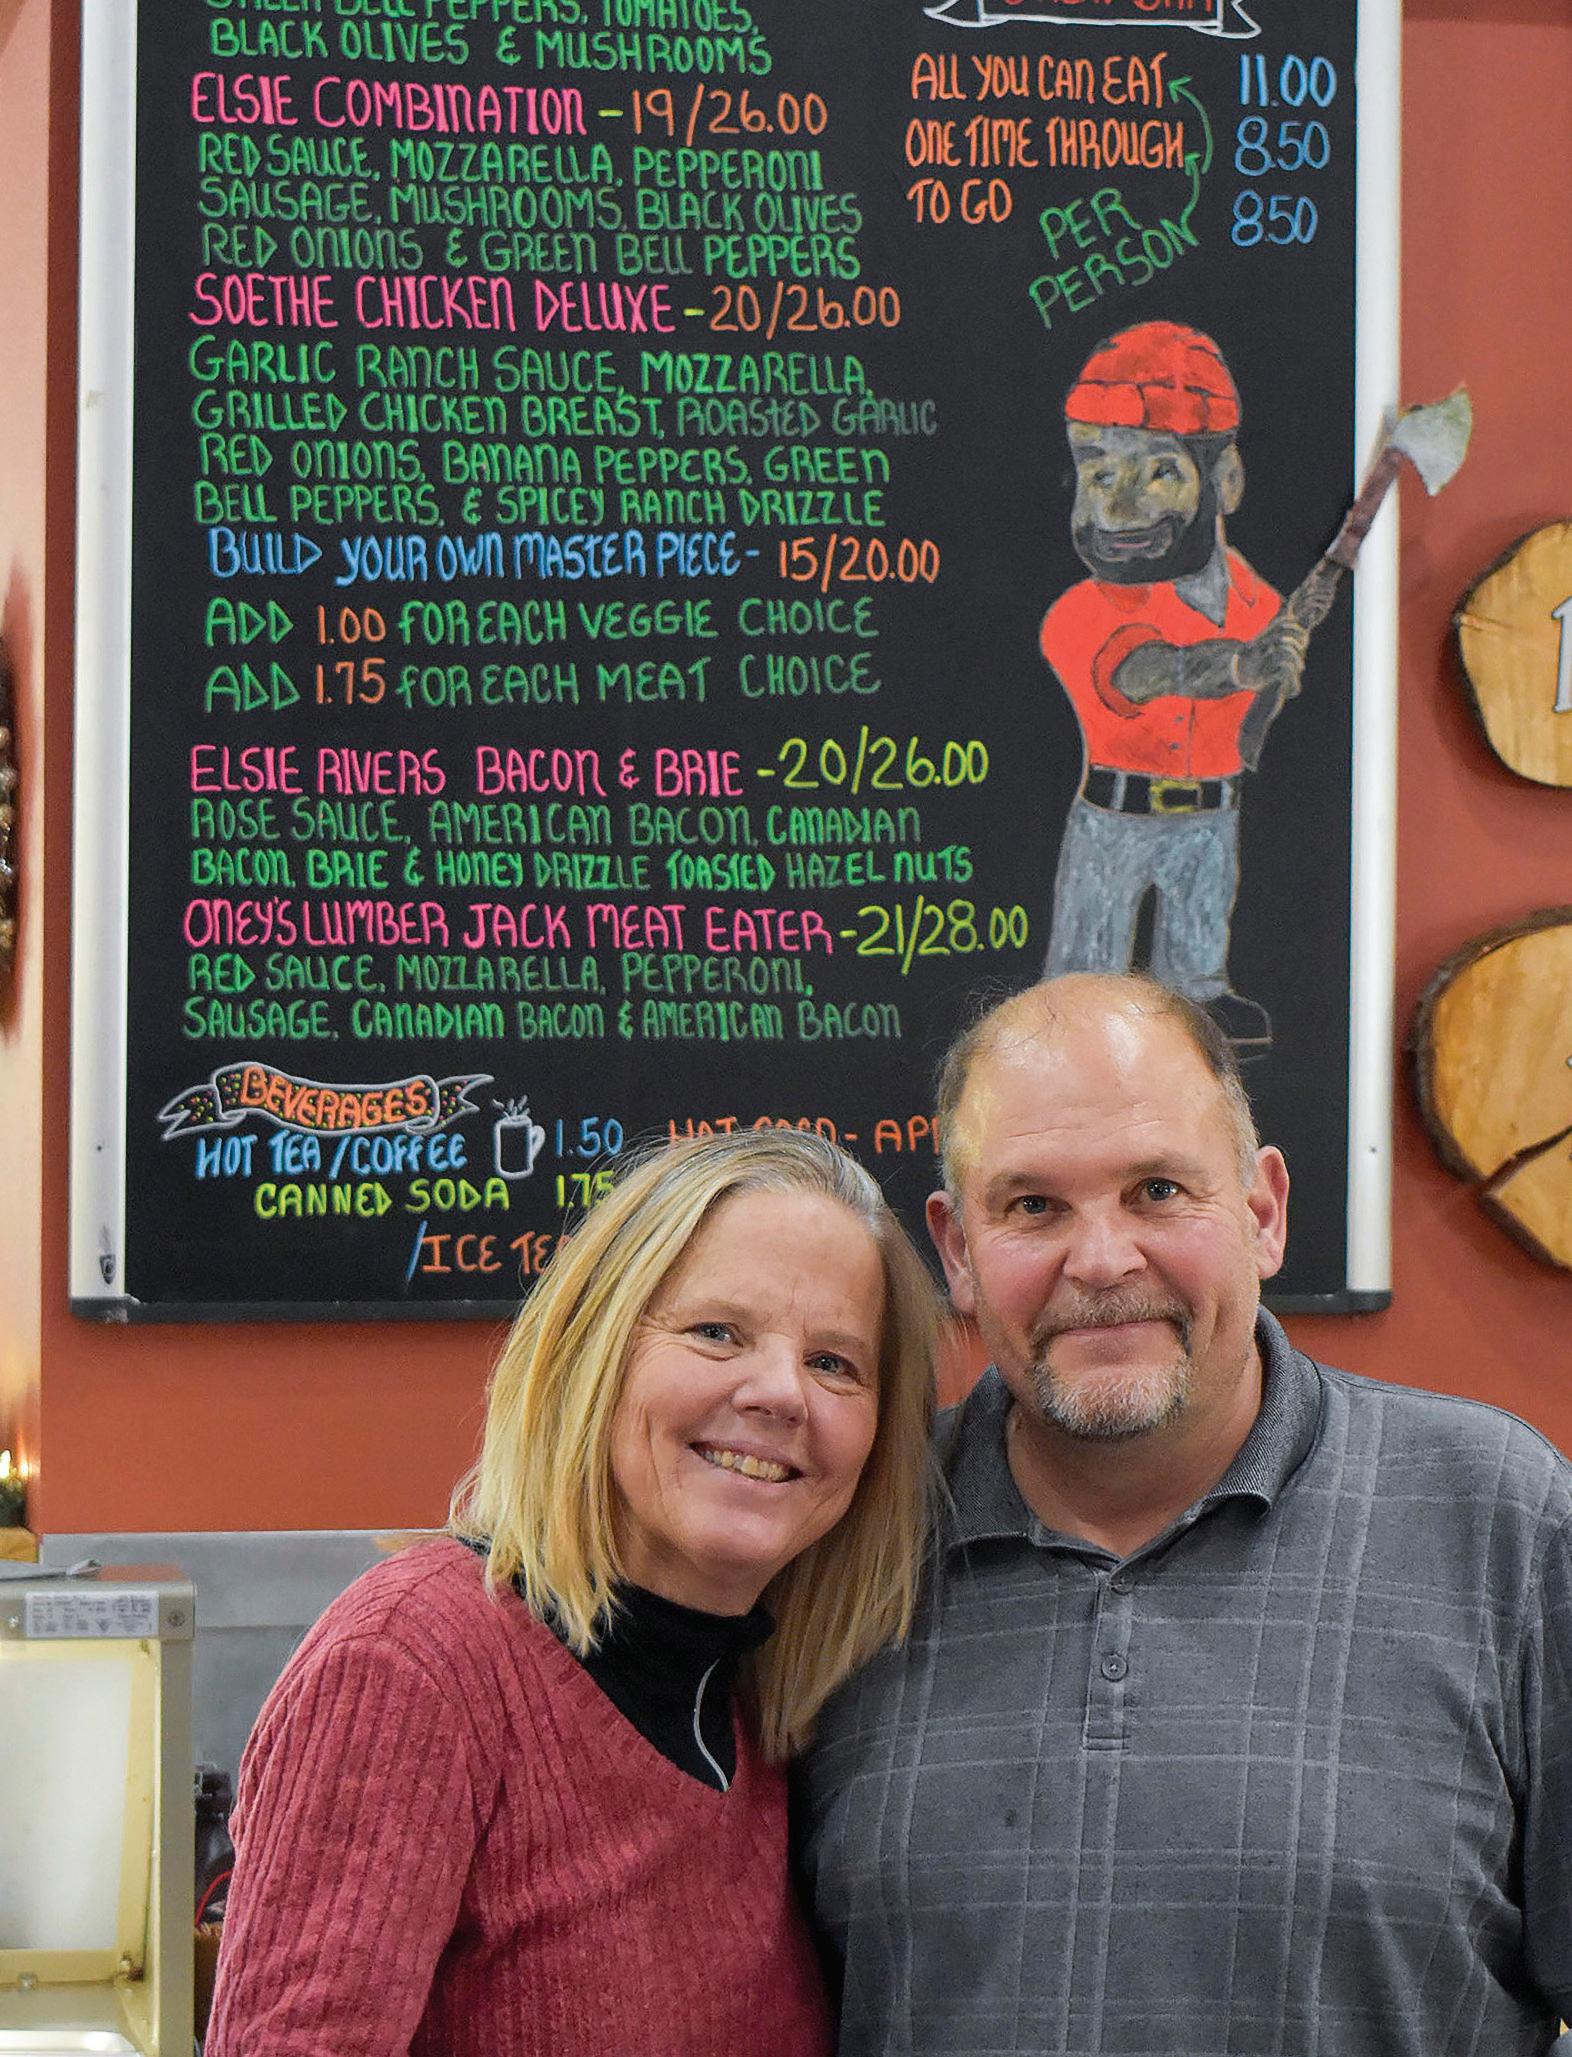 BELL PEPPERS, TOMATOES,
BLACK OLIVES & MUSHROOMS
ELSIE COMBINATION - 19/26.00
RED SAUCE, MOZZARELLA, PEPPERONI
SAUSAGE, MUSHROOMS, BLACK OLIVES
RED ONIONS & GREEN BELL PEPPERS
SOETHE CHICKEN DELUXE - 20/26.00
GARLIC RANCH SAUCE, MOZZARELLA,
GRILLED CHICKEN BREAST, ROASTED GARLIC
RED ONIONS, BANANA PEPPERS, GREEN
BELL PEPPERS, & SPICEY RANCH DRIZZLE
BUILD YOUR OWN MASTER PIECE - 15/20.00
ADD 1.00 FOR EACH VEGGIE CHOICE
ADD 1.75 FOR EACH MEAT CHOICE
ELSIE RIVERS BACON & BRIE - 20/26.00
ROSE SAUCE, AMERICAN BACON, CANADIAN
BACON, BRIE & HONEY DRIZZLE TOASTED HAZEL NUTS
ONEY'S LUMBER JACK MEAT EATER - 21/28.00
RED SAUCE, MOZZARELLA, PEPPERONI,
SAUSAGE, CANADIAN BACON & AMERICAN BACON
BEVERAGES
HOT TEA / COFFEE 1.50
CANNED SODA 1.75
/ICE TE
ALL YOU CAN EAT 11.00
ONE TIME THROUGH 8.50
TO GO 8.50
PER
PERSON